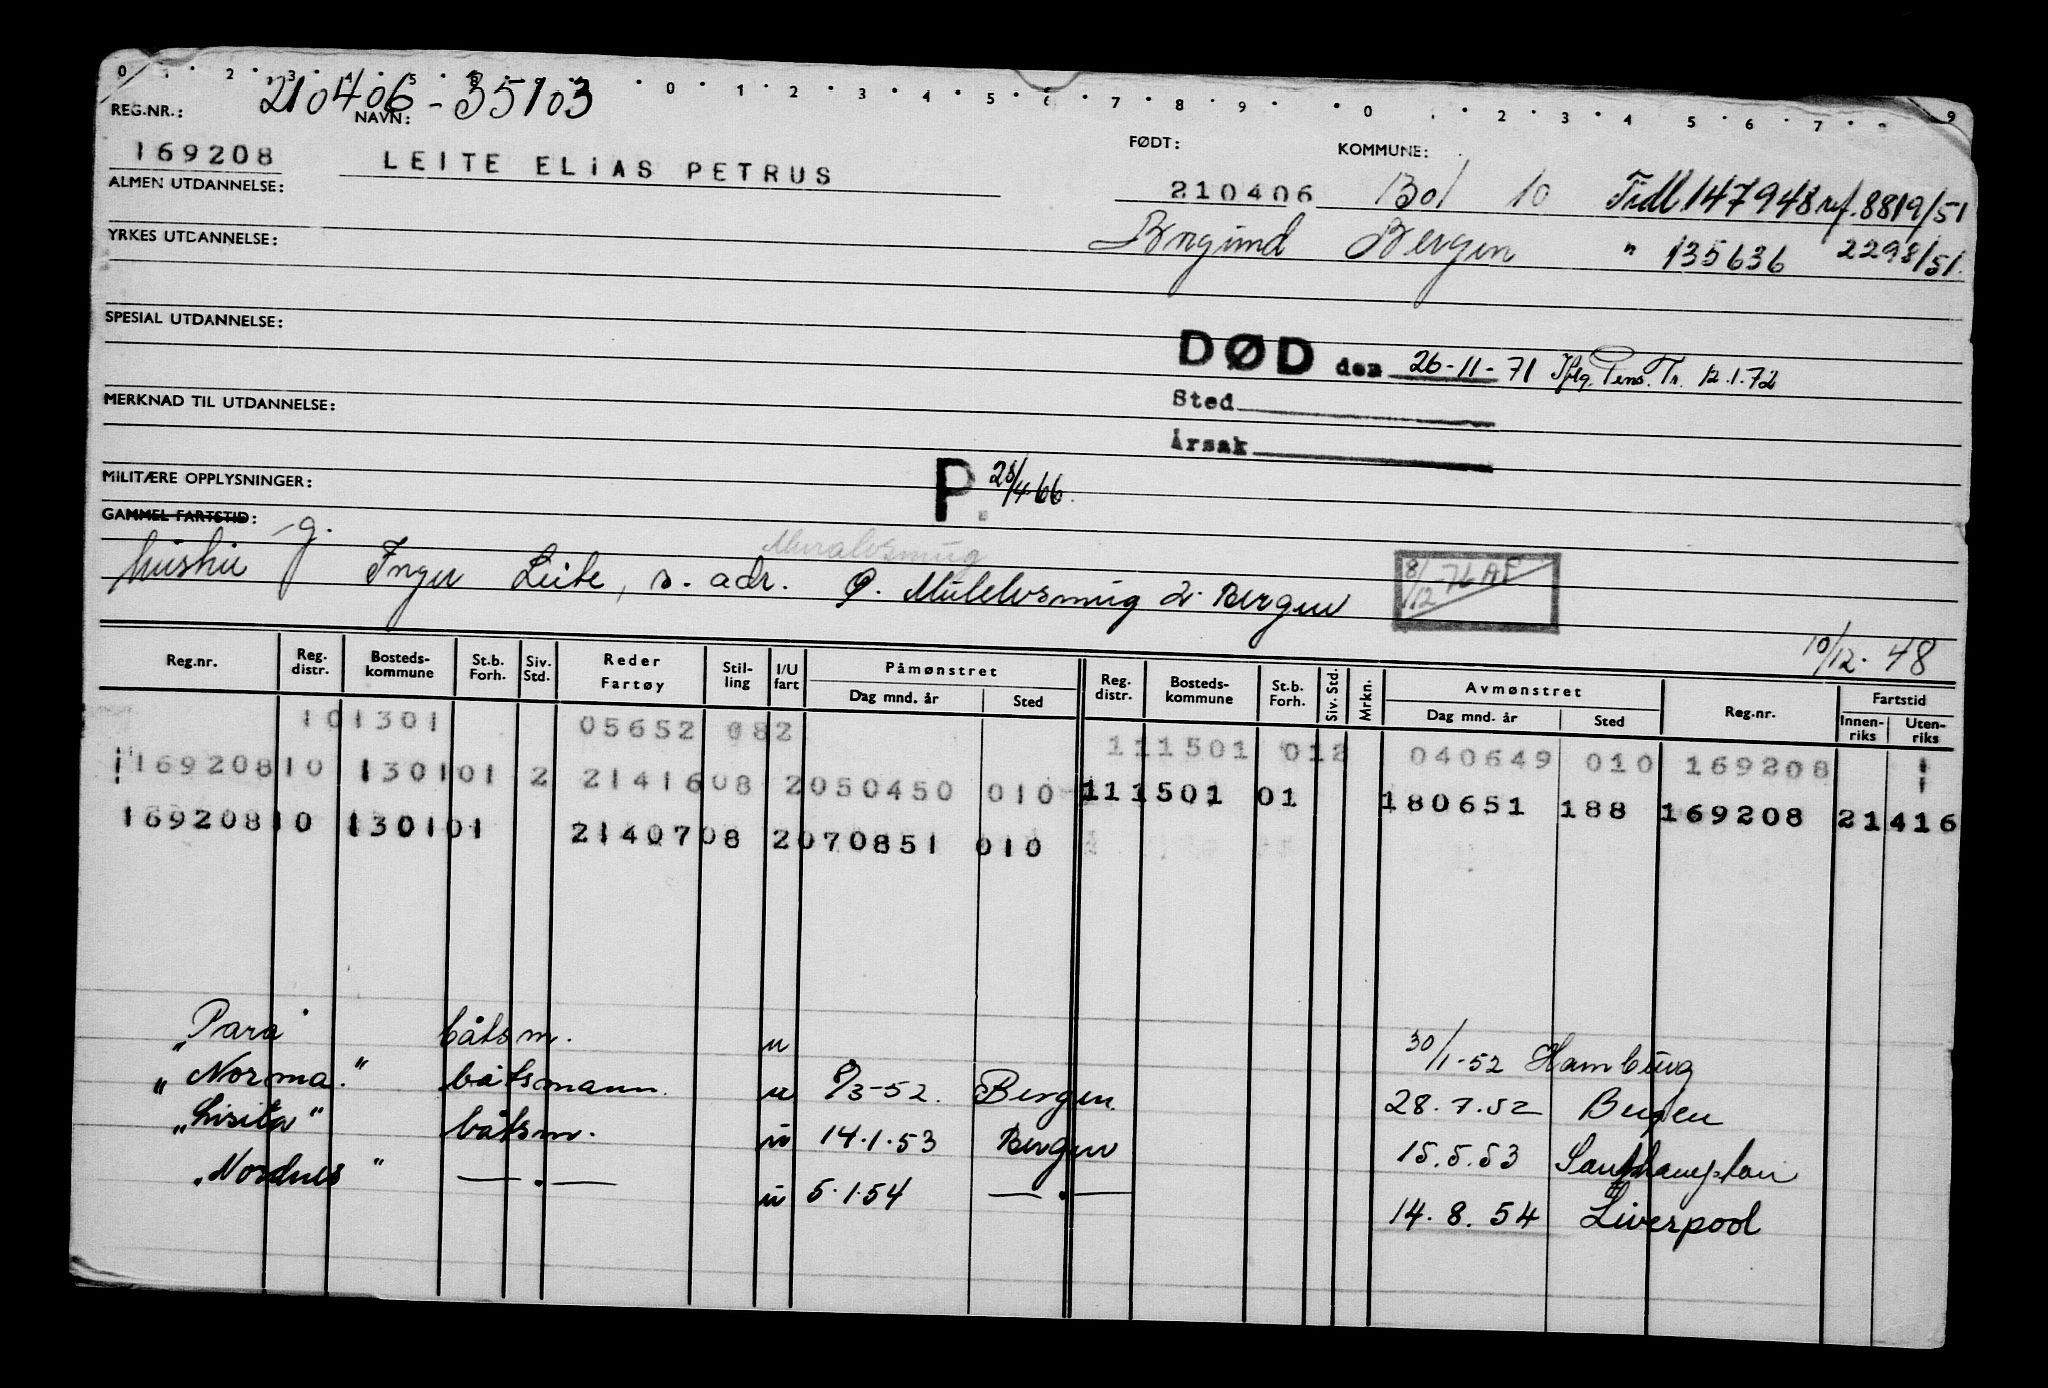 0 1 2 3 4 5 8 9 0 1 2 3 4 5 6 7 8 9 0 . 2 3 4 5 6 7 9
REG.NR.: 210406-35103
NAVN: FØDT: KOMMUNE:
169208 LEITE ELiAS PETRUS 210406 1301 10 Tidl 147948 ref. 8819/51
ALMEN UTDANNELSE:
Borgund Bergen " 135636 2298/51.
YRKES UTDANNELSE:
SPESIAL UTDANNELSE:
DØD den 26-11-71 Iflg. Pens. Tr. 12.1.72
Sted
MERKNAD TIL UTDANNELSE:
Årsak
MILITÆRE OPPLYSNINGER:
P. 28/4-66.
GAMMEL FARTSTID: -g.
hustru Inger Leite, s. adr. Ø. Mulelvsmug 2. Bergen
Muralvsmug
8/12-76 AF
10/12-48
Reg.nr. Reg. distr. Bosteds-kommune St.b. Forh. Siv. Std. Reder Fartøy Stil-ling I/U fart Påmønstret Reg. distr. Bosteds-kommune St.b. Forh. Siv. Std. Mrkn. Avmønstret Reg.nr. Fartstid
Dag mnd. år Sted Dag mnd. år Sted Innen-riks Uten-riks
101301 05652 082 111501 012 040649 010 169208
169208 10 130101 2 21416 08 2 050450 010 111501 01 180651 188 169208 21416
169208 10 130101 21407 08 2 070851 010
"Para" båtsm. u 30/1-52 Hamburg
"Norma." båtsmann. u 8/3-52. Bergen. 28.7.52 Bergen
"Lisita" båtsm. u 14.1.53 Bergen 15.5.53 Southampton
"Nordnes" —.— u 5.1.54 —.— 14.8.54 Liverpool